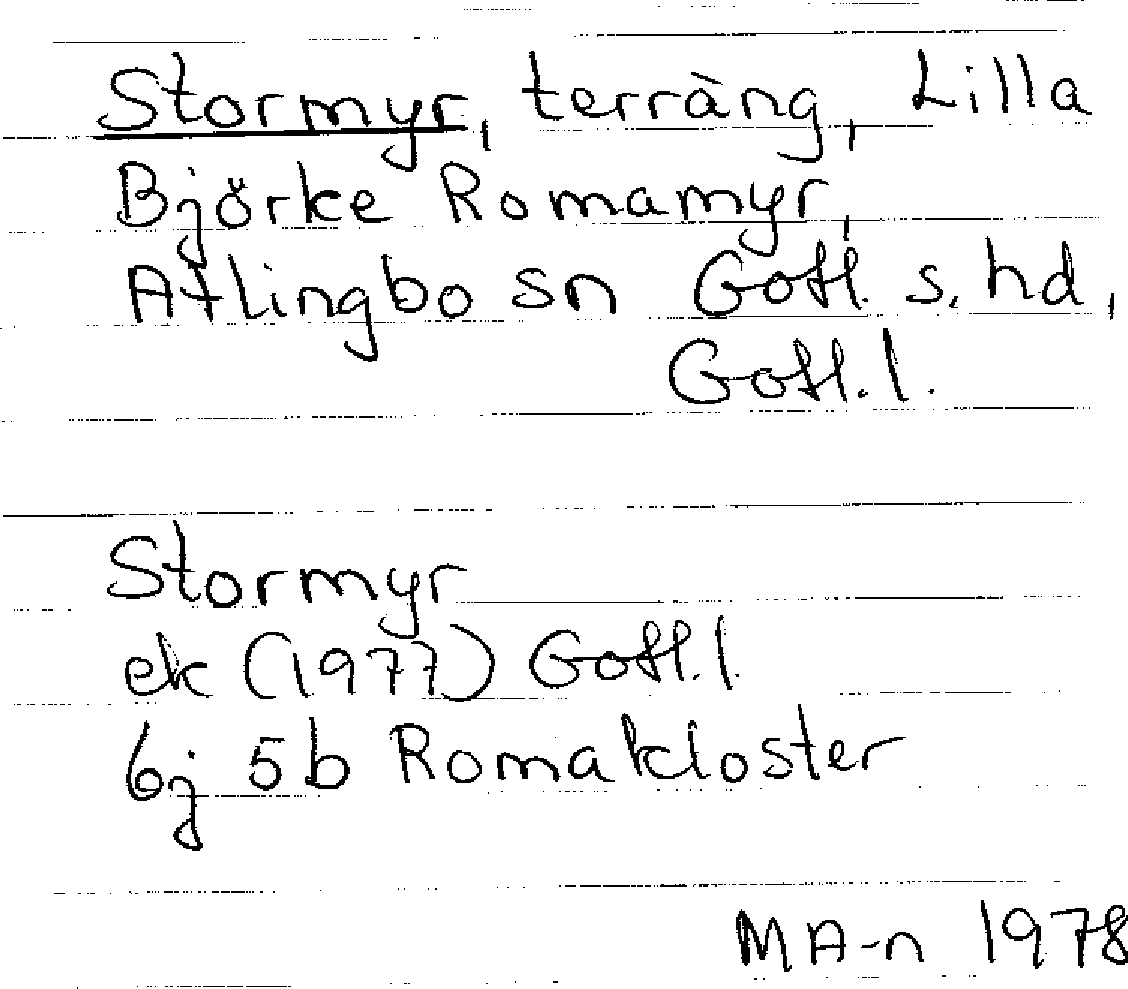 Stormyr, terräng, Lilla
Björke Romamyr,
Atlingbo sn Gotl. s. hd,
Gotl. l.
Stormyr
ek (1977) Gotl. l.
6j 5b Romakloster
MA-n 1978